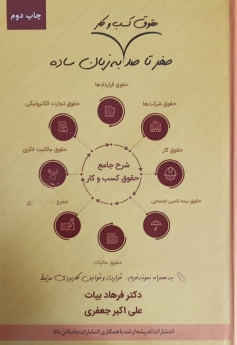 چاپ دوم
حقوق کسب و کار
صفر تا صد به زبان ساده
حقوق قراردادها
حقوق تجارت الکترونیکی
حقوق شرکت‌ها
حقوق مالکیت فکری
حقوق کار
شرح جامع
حقوق کسب و کار
حقوق بیمه تامین اجتماعی
حقوق
حقوق مالیات
به همراه نمونه فرم، قرارداد و قوانین کاربردی مرتبط
دکتر فرهاد بیات
علی اکبر جعفری
انتشارات اندیشه ارشد با همکاری انتشارات دادبانان دانا